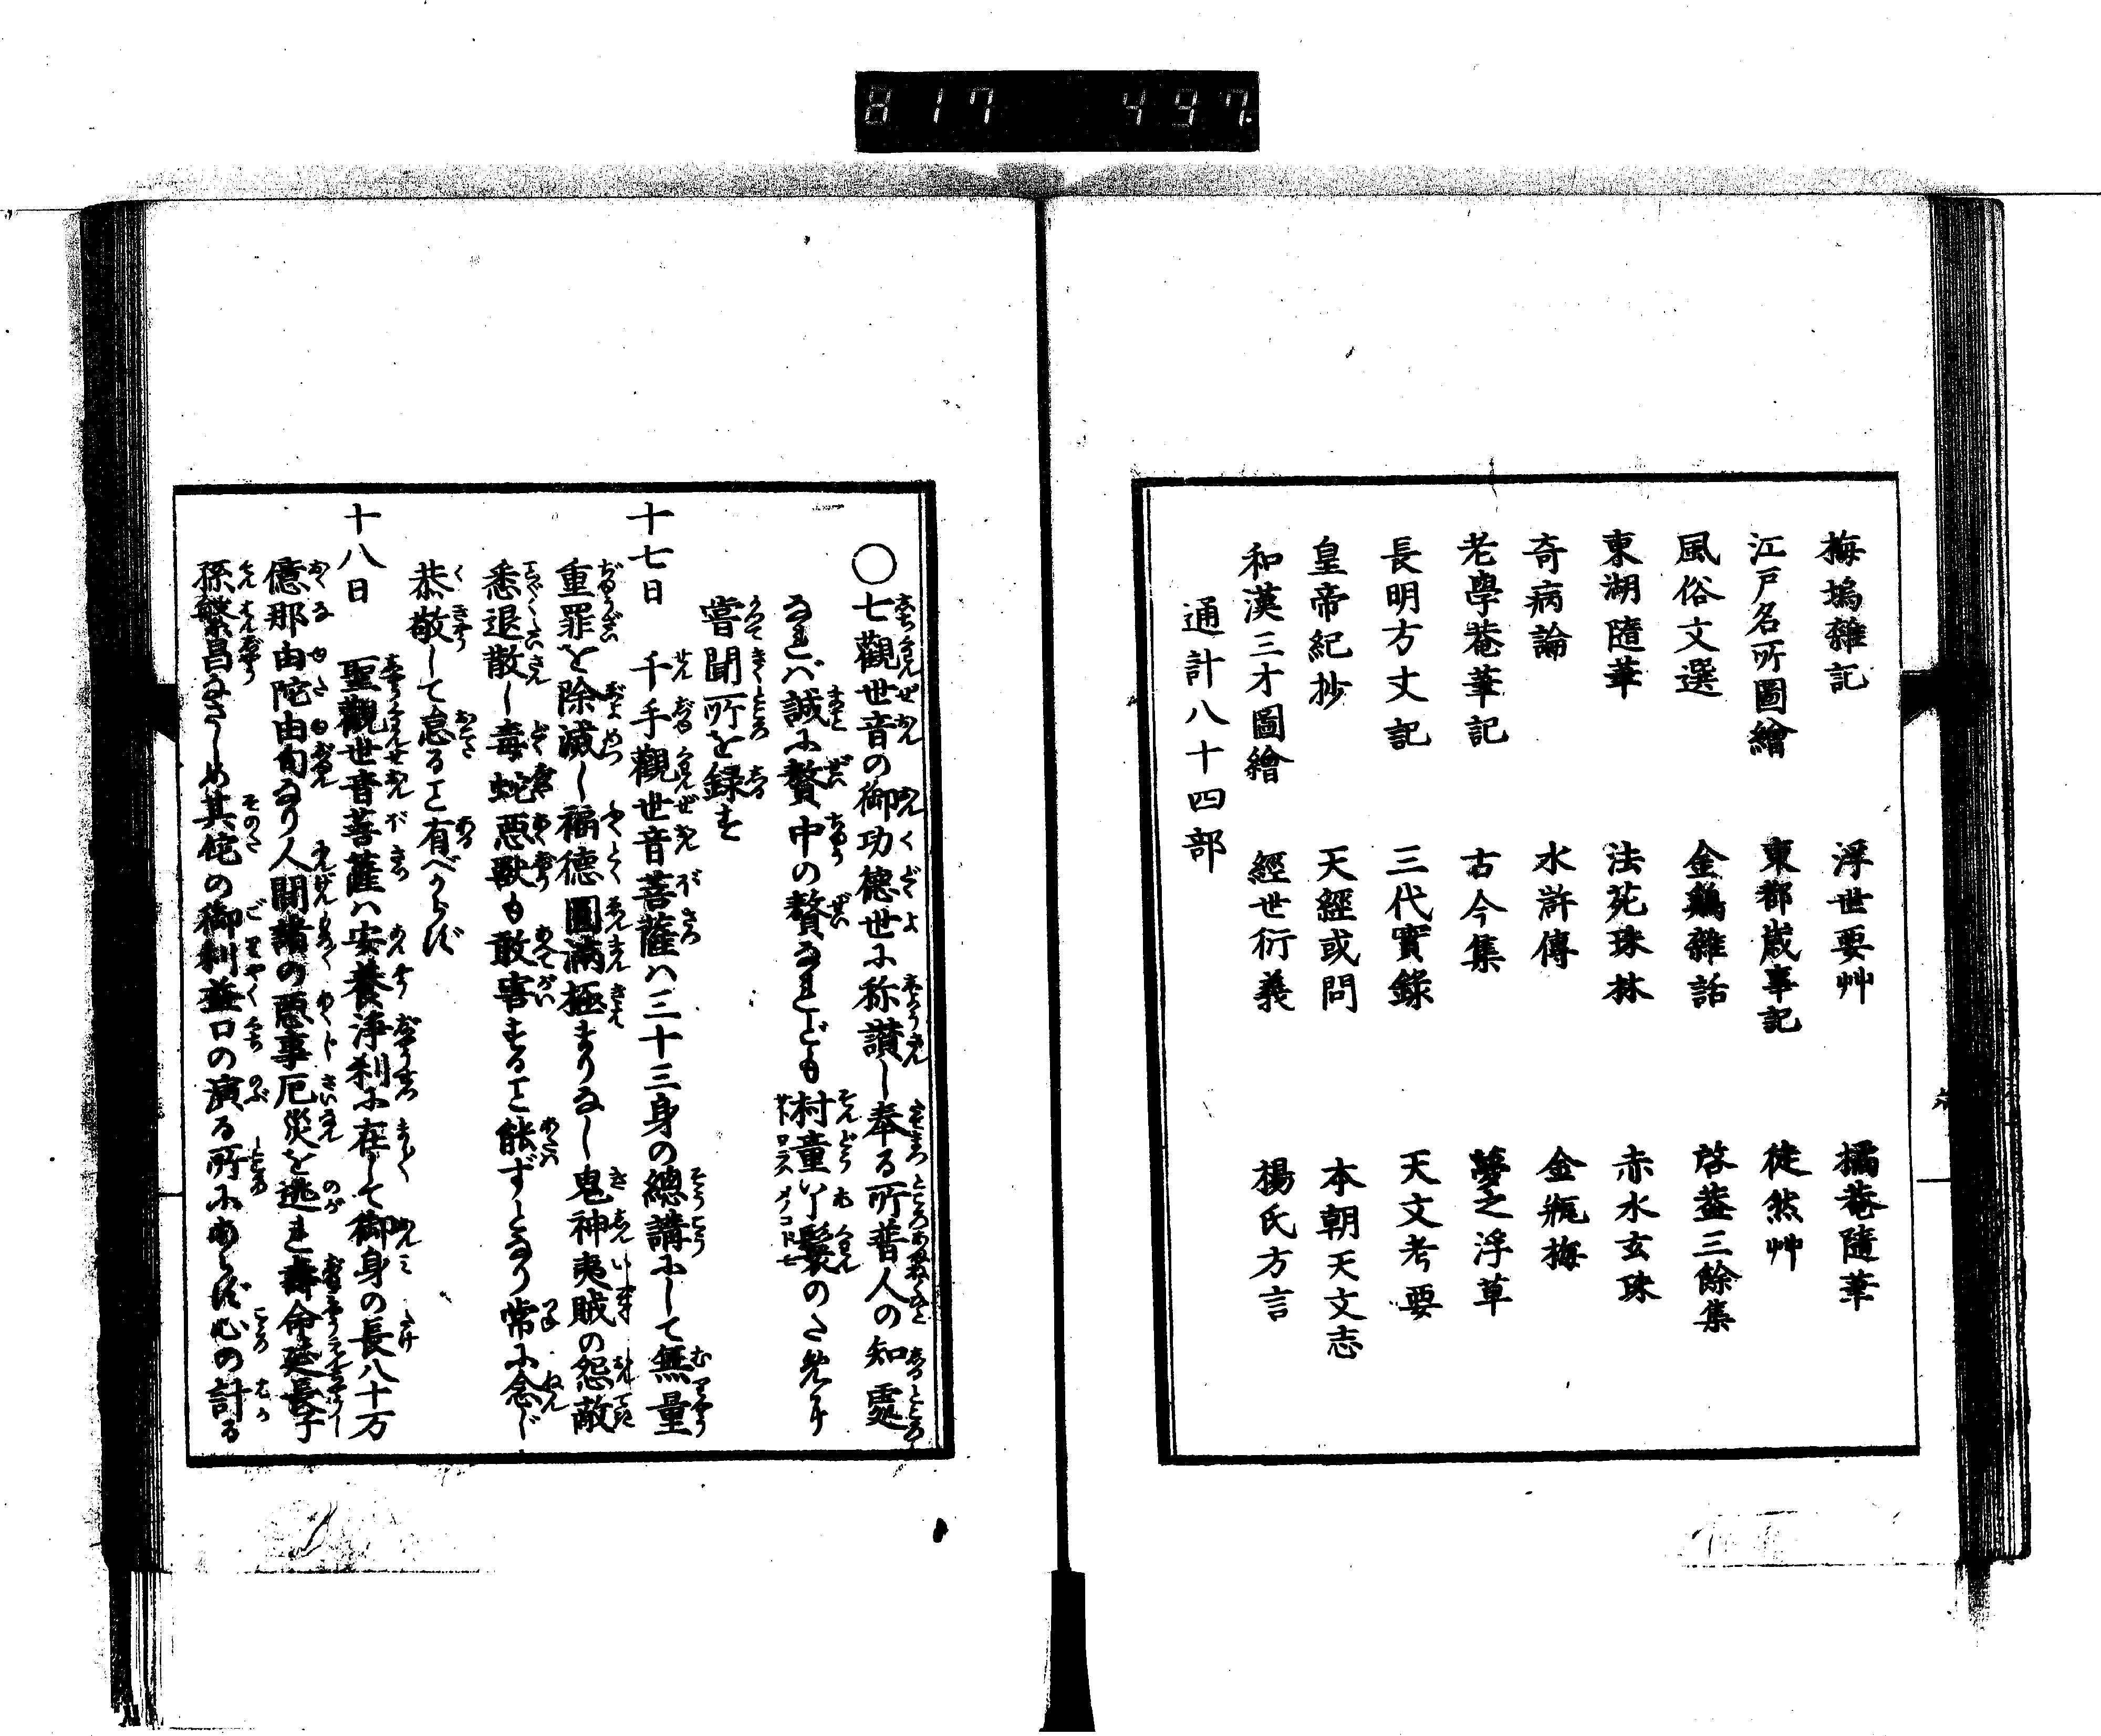 817 497.
梅塢雜記　浮世要艸　橘菴隨筆
江戸名所圖繪　東都歳事記　徒然艸
風俗文選　金鷄雜話　啓蓋三餘集
東湖隨筆　法苑珠林　赤水玄珠
奇病論　水滸傳　金瓶梅
老學菴筆記　古今集　夢之浮草
長明方丈記　三代實錄　天文考要
皇帝紀抄　天經或問　本朝天文志
和漢三才圖繪　經世衍義　楊氏方言
通計八十四部
○七觀世音の御功德世に称讃し奉る所普人の知處
なれバ誠に贅中の贅なれども村童丫鬟のため
嘗聞所を録す
十七日　千手觀世音菩薩ハ三十三身の總講にして無量
重罪を除滅し福德圓滿極まりなし鬼神夷賊の怨敵
悉退散し毒蛇惡獸も敢害することᅠ能ずとなり常に念じ
恭敬して怠ること有べからず
十八日　聖觀世音菩薩ハ安養淨刹に在して御身の長八十万
億那由陀由旬なり人間諸の惡事厄災を逃れ壽命延長子
孫繁昌なさしめ其侘の御利益口の演る所にあらず心の計る